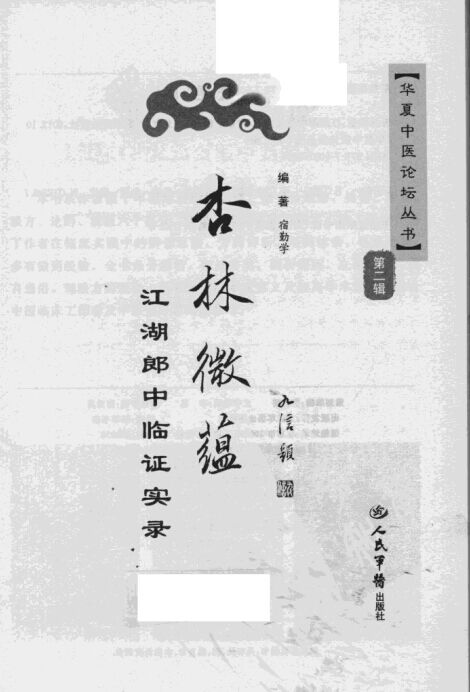 【华夏中医论坛丛书】
第二辑
编著 宿勤学
杏林微蕴
江湖郎中临证实录
人民军医出版社